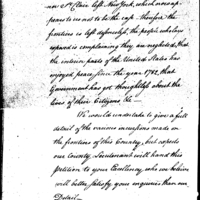 nor St Clair left New York, which now ap-
pears to us not to be the case. Therefore the
frontiers is left defenceless, the people who lay
exposed is complaining they are neglected, that
the interior parts of the United States has
enjoyed peace since the year 1782, that
Government has got thoughtless about the
lives of their Citizens &c —
We would undertake to give a full
detail of the various incursions made on
the frontiers of this Country, but expects
our County Lieutenants will hand this
petition to your Excellency, who we believe
will better satisfy your enquiries than our
Detail —